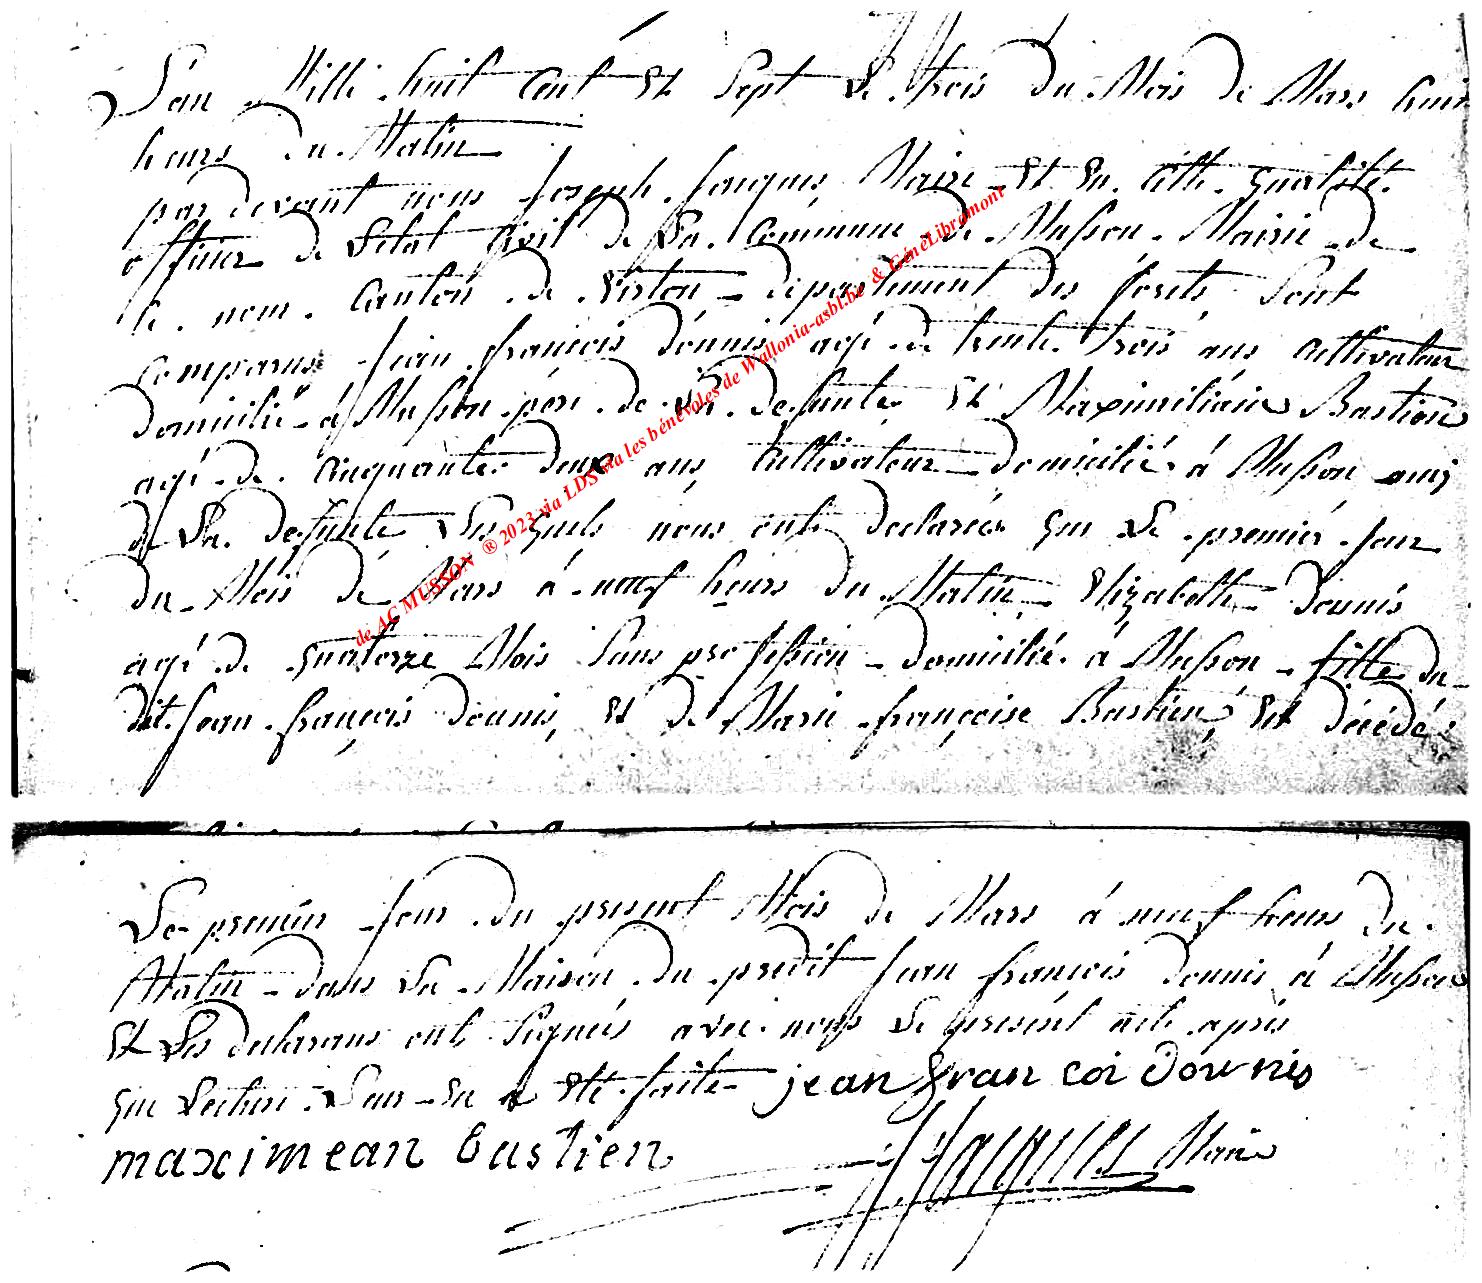 L'an Mille huit Cent Et Sept Le trois du Mois de Mars huit
heurs du Matin
par devant nous Joseph Jacques Maire Et En Cette qualité
officier de Letat Civil de La Commune de Musson Mairie de
Ce nom Canton de Virton département des forêts Sont
comparus Jean françois dounis agé de trente trois ans Cultivateur
domicilié à Musson pere de La defunte Et Maximiliain Bastien
agé de Cinquante deux ans Cultivateur domicilié à Musson ami
de La defunte Les quels nous onts declarées que Le premier Jour
du Mois de Mars à neuf heurs du Matin Elizabeth dounis
agé de quatorze Mois Sans profession domicilié à Musson fille du
dit Jean françois dounis Et de Marie françoise Bastien Est décédé
Le premier Jour du present Mois de Mars à neuf heurs du
Matin dans La Maison du predit Jean françois dounis à Musson
Et Les declarans onts Signées avec nous Le présent acte après
que Lecture Leur En a Eté faite jean fran coi dounis
maximean bastien
JJacques Maire
de AC MUSSON ® 2023 via LDS via les bénévoles de Wallonia-asbl.be & GénéLibramont